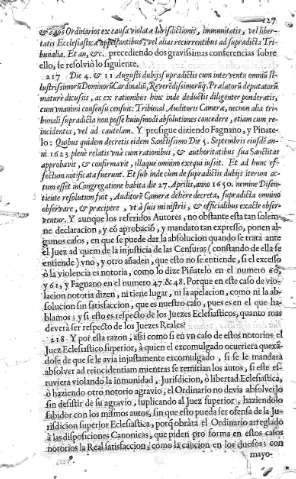 127
& casos Ordinarios ex causa violatæ Iurisdictionis, immunitatis, vel liber-
tatis Ecclesiasticæ vel aliàs recurrentibus ad supradicta Tri-
bunalia. Et an, &c. precediendo dos gravissimas conferencias sobre
ello, se resolviò lo siguiente.
217 Die 4. & 11 Augusti dubijs supradictis cum interventu omniũ Il-
lustrissimorũ Dominorũ Cardinaliũ, Reverẽdissimorũq; Prælatorũ deputatorũ
maturè discussis, ac ex rationibus hinc inde deductis diligenter ponderatis,
cum unanimi consensu censuit. Tribunal, Auditoris Cameræ, necnon alia tri-
bunali supradicta non posse huiusmodi absolutiones concedere, etiam cum re-
incidentia, vel ad cautelam. Y prosigue diziendo Fagnano, y Pinate-
lo: Quibus quidem decretis eidem Sanctissimo Die 5. Septembris eiusdẽ an-
ni 1623 plenè relatis unà cum rationibus, & authoritatibus sua Sanctitas
approbavit, & confirmavit, illaque omnino exequi iussit. Et ad hunc ef-
fectum notificata fuerunt. Et sub inde cum de supradictis dubijs iterum ac-
tum esset in Congregatione habita die 27. Aprilis, anno 1630. nemine Discre-
tiente resolutum fuit, Auditorẽ Cameræ debere decreta, supradicta omnino
observare, & præcipere, ut à suis ministris, & officialibus exactè obser-
ventur. Y aunque los referidos Autores, no obstante esta tan solem-
ne declaracion, y cõ aprobaciõ, y mandato tan expresso, ponen al-
gunos casos, en que se puede dar la absolucion quando se trata ante
el Juez ad quem de la injusticia de las Censuras (constando de ella se
entiende) y no, y otro añaden, que esto no se entiende, si el excesso
ò la violencia es notoria, como lo dize Piñatelo en el numero 60,
y 61, y Fagnano en el numero 47 & 48. Porque en este caso de vio-
lacion notoria dizen, ni tiene lugar, ni la apelacion, como ni la ab-
solucion sin satisfaccion, que es nuestro caso, pues es en el que ha-
blamos: y si esto es respecto de los Juezes Eclesiasticos, quanto mas
deverà ser respecto de los Juezes Reales?
218. Y por essa razon, assi como si en vn caso de estos notorios el
Juez Eclesiastico superior, à quien el excomulgado ocurriera quexã-
dose de que se le avia injustamente excomulgado, si se le mandarà
absolver ad reincidentiam mientras se remitian los autos, si este es-
tuviera violando la inmunidad, Jurisdicion, ò libertad Eclesiastica,
ò haziendo otro notorio agravio, el Ordinario no devia absolverlo
sin desistir de su agravio, suplicando al Juez superior, haziendolo
sabidor con los mismos autos, sin que esto pueda ser ofensa de la Ju-
risdicion superior Eclesiastica, porq̃ obràra el Ordinario arreglado
à las disposiciones Canonicas, que piden pro forma en estos casos
notorios la Real satisfaccion, como la caucion en los dudosos con
mayo-